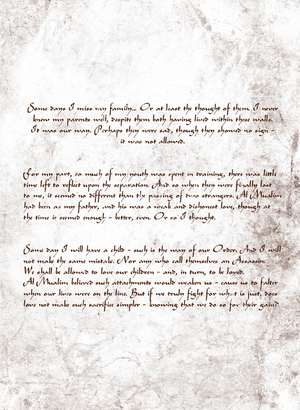 Some days I miss my family... Or at least the thought of them. I never
knew my parents well, despite them both having lived within these walls.
It was our way. Perhaps they were sad, though they showed no sign -
it was not allowed.
For my part, so much of my youth was spent in training, there was little
time left to reflect upon the separation. And so when they were finally lost
to me, it seemed no different than the passing of two strangers. Al Mualim
had been as my father, and his was a weak and dishonest love, though at
the time is seemed enough - better, even. Or so I thought.
Some day I will have a child - such is the way of our Order. And I will
not make the same mistake. Nor any who call themselves an Assassin.
We shall be allowed to love our children - and, in turn, to be loved.
Al Mualim believed such attachments would weaken us - cause us to falter
when our lives were on the line. But if we truly fight for what is just, does
love not make such sacrifice simpler - knowing that we do so for their gain?